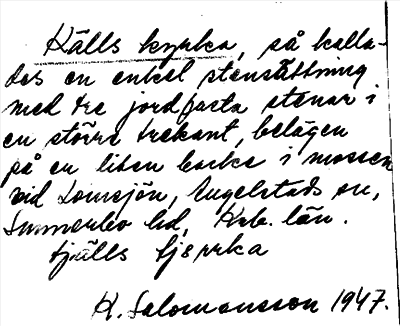 Källs kyrka, så kalla-
des en enkel stensättning
med tre jordfasta stenar i
en större trekant, belägen
på en liten backe i mossen
vid Lomsjön, Ängelstads sn,
Sunnerbo hd, Krb. län.
tjälls tjsprka
K. Salomonsson 1947.